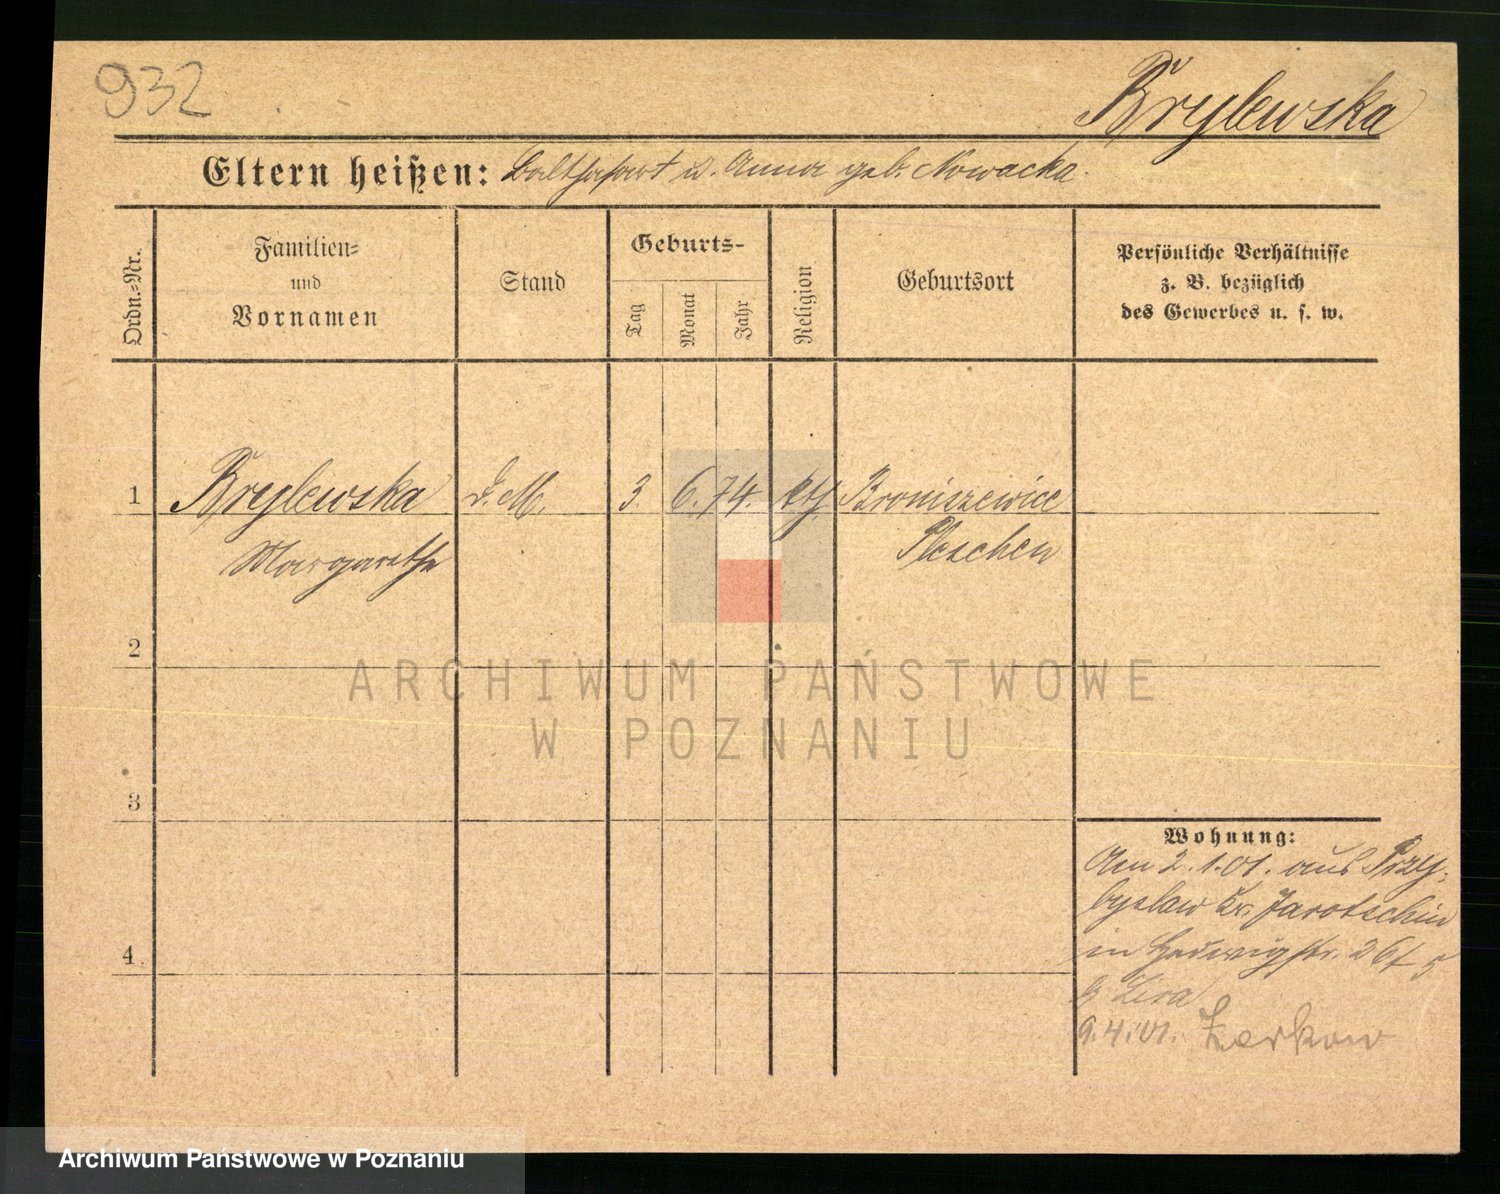 932
Krylewska
Eltern heißen: Balthasart u. Anna geb. Nowacka.
Ordn.-Nr.
Familien-
und
Vornamen
Stand
Geburts-
Tag
Monat
Jahr
Religion
Geburtsort
Persönliche Verhältnisse
z. B. bezüglich
des Gewerbes u. s. w.
1 Krylewska d. M. 3. 6. 74. kth Broniszewice
Margarethe Pleschen
2
ARCHIWUM PAŃSTWOWE
W POZNANIU
3
Wohnung:
Am 2.1.01. aus Przy-
byslaw Kr. Jarotschin
in Hedwigstr. 26
4
b Lisa
9.4.01. Zerkow
Archiwum Państwowe w Poznaniu